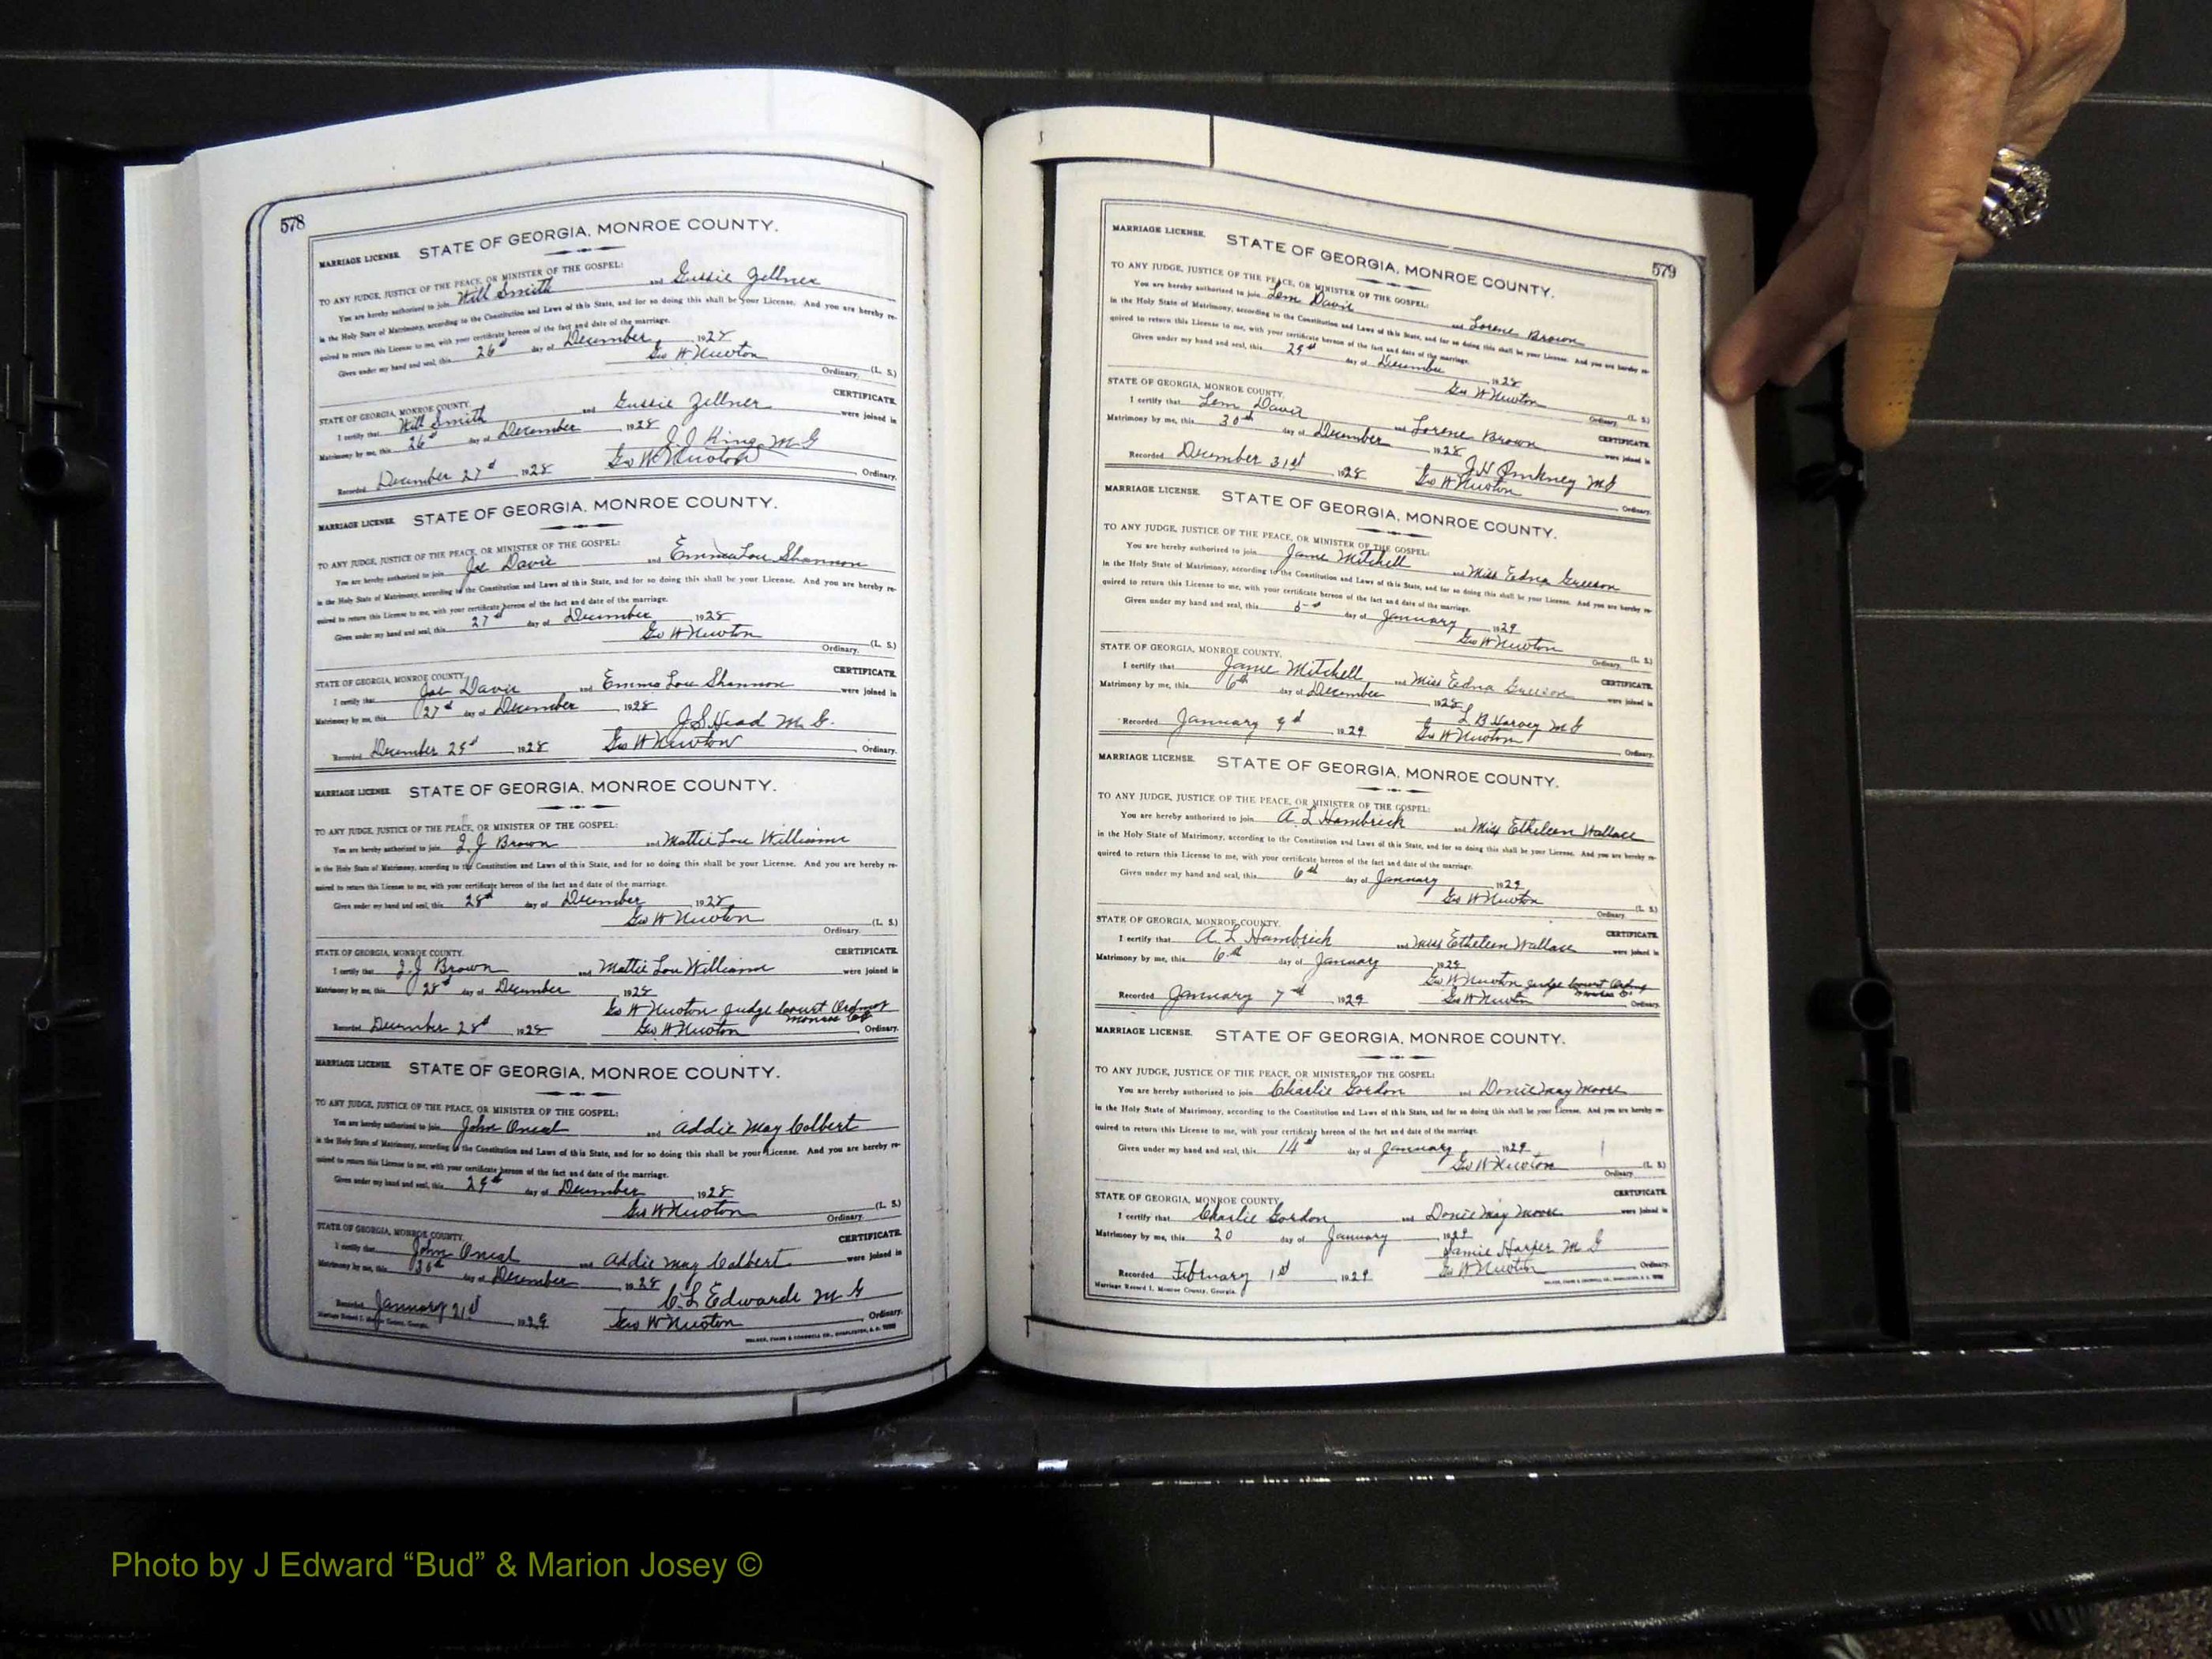 578
MARRIAGE LICENSE. STATE OF GEORGIA, MONROE COUNTY.
TO ANY JUDGE, JUSTICE OF THE PEACE, OR MINISTER OF THE GOSPEL:
You are hereby authorized to join Will Smith and Gussie Zellner
in the Holy State of Matrimony, according to the Constitution and Laws of this State, and for so doing this shall be your License. And you are hereby re-
quired to return this License to me, with your certificate hereon of the fact and date of the marriage.
Given under my hand and seal, this 26d day of December 1928
Geo W Newton
Ordinary. (L. S.)
STATE OF GEORGIA, MONROE COUNTY. CERTIFICATE.
I certify that Will Smith and Gussie Zellner were joined in
Matrimony by me, this 26d day of December 1928
J. J. King M G
Recorded December 27d 1928 Geo W Newton Ordinary.
MARRIAGE LICENSE. STATE OF GEORGIA, MONROE COUNTY.
TO ANY JUDGE, JUSTICE OF THE PEACE, OR MINISTER OF THE GOSPEL:
You are hereby authorized to join Joe Davis and Emma Lou Shannon
in the Holy State of Matrimony, according to the Constitution and Laws of this State, and for so doing this shall be your License. And you are hereby re-
quired to return this License to me, with your certificate hereon of the fact and date of the marriage.
Given under my hand and seal, this 27d day of December 1928
Geo W Newton
Ordinary. (L. S.)
STATE OF GEORGIA, MONROE COUNTY. CERTIFICATE.
I certify that Joe Davis and Emma Lou Shannon were joined in
Matrimony by me, this 27d day of December 1928
J S Head M. G.
Recorded December 29d 1928 Geo W Newton Ordinary.
MARRIAGE LICENSE. STATE OF GEORGIA, MONROE COUNTY.
TO ANY JUDGE, JUSTICE OF THE PEACE, OR MINISTER OF THE GOSPEL:
You are hereby authorized to join J. J Brown and Mattie Lou Williams
in the Holy State of Matrimony, according to the Constitution and Laws of this State, and for so doing this shall be your License. And you are hereby re-
quired to return this License to me, with your certificate hereon of the fact and date of the marriage.
Given under my hand and seal, this 28d day of December 1928
Geo W Newton
Ordinary. (L. S.)
STATE OF GEORGIA, MONROE COUNTY. CERTIFICATE.
I certify that J. J Brown and Mattie Lou Williams were joined in
Matrimony by me, this 28d day of December 1928
Geo W Newton Judge Court Ordinary
Monroe Co
Recorded December 28d 1928 Geo W Newton Ordinary.
MARRIAGE LICENSE. STATE OF GEORGIA, MONROE COUNTY.
TO ANY JUDGE, JUSTICE OF THE PEACE, OR MINISTER OF THE GOSPEL:
You are hereby authorized to join John Oneal and Addie May Colbert
in the Holy State of Matrimony, according to the Constitution and Laws of this State, and for so doing this shall be your License. And you are hereby re-
quired to return this License to me, with your certificate hereon of the fact and date of the marriage.
Given under my hand and seal, this 29th day of December 1928
Geo W Newton
Ordinary. (L. S.)
STATE OF GEORGIA, MONROE COUNTY. CERTIFICATE.
I certify that John Oneal and Addie May Colbert were joined in
Matrimony by me, this day of December 1928
C. L Edwards M G
Recorded January 21d 1929 Geo W Newton Ordinary.
Marriage Record I, Monroe County, Georgia. WALKER, EVANS & COGSWELL CO., CHARLESTON, S. C.
579
MARRIAGE LICENSE. STATE OF GEORGIA, MONROE COUNTY.
TO ANY JUDGE, JUSTICE OF THE PEACE, OR MINISTER OF THE GOSPEL:
You are hereby authorized to join Lem Davis and Lorene Brown
in the Holy State of Matrimony, according to the Constitution and Laws of this State, and for so doing this shall be your License. And you are hereby re-
quired to return this License to me, with your certificate hereon of the fact and date of the marriage.
Given under my hand and seal, this 29d day of December 1928
Geo W Newton
Ordinary. (L. S.)
STATE OF GEORGIA, MONROE COUNTY. CERTIFICATE.
I certify that Lem Davis and Lorene Brown were joined in
Matrimony by me, this 30th day of December 1928
J H Pinkney M G
Recorded December 31d 1928 Geo W Newton Ordinary.
MARRIAGE LICENSE. STATE OF GEORGIA, MONROE COUNTY.
TO ANY JUDGE, JUSTICE OF THE PEACE, OR MINISTER OF THE GOSPEL:
You are hereby authorized to join Jame Mitchell and Miss Edna Greeson
in the Holy State of Matrimony, according to the Constitution and Laws of this State, and for so doing this shall be your License. And you are hereby re-
quired to return this License to me, with your certificate hereon of the fact and date of the marriage.
Given under my hand and seal, this 5d day of January 1929
Geo W Newton
Ordinary. (L. S.)
STATE OF GEORGIA, MONROE COUNTY. CERTIFICATE.
I certify that Jame Mitchell and Miss Edna Greeson were joined in
Matrimony by me, this 6th day of December 1928
L B Harvey M G
Recorded January 9d 1929 Geo W Newton Ordinary.
MARRIAGE LICENSE. STATE OF GEORGIA, MONROE COUNTY.
TO ANY JUDGE, JUSTICE OF THE PEACE, OR MINISTER OF THE GOSPEL:
You are hereby authorized to join A. L Hambrick and Miss Ethileen Wallace
in the Holy State of Matrimony, according to the Constitution and Laws of this State, and for so doing this shall be your License. And you are hereby re-
quired to return this License to me, with your certificate hereon of the fact and date of the marriage.
Given under my hand and seal, this 6th day of January 1929
Geo W Newton
Ordinary. (L. S.)
STATE OF GEORGIA, MONROE COUNTY. CERTIFICATE.
I certify that A. L Hambrick and Miss Ethileen Wallace were joined in
Matrimony by me, this 6th day of January 1929
Geo W Newton Judge Court
Recorded January 7th 1929 Geo W Newton Ordinary.
MARRIAGE LICENSE. STATE OF GEORGIA, MONROE COUNTY.
TO ANY JUDGE, JUSTICE OF THE PEACE, OR MINISTER OF THE GOSPEL:
You are hereby authorized to join Charlie Gordon and Donie May Moore
in the Holy State of Matrimony, according to the Constitution and Laws of this State, and for so doing this shall be your License. And you are hereby re-
quired to return this License to me, with your certificate hereon of the fact and date of the marriage.
Given under my hand and seal, this 14d day of January 1929
Geo W Newton
Ordinary. (L. S.)
STATE OF GEORGIA, MONROE COUNTY. CERTIFICATE.
I certify that Charlie Gordon and Donie May Moore were joined in
Matrimony by me, this 20 day of January 1929
Jamie Harper M G
Recorded February 1d 1929 Geo W Newton Ordinary.
Marriage Record I, Monroe County, Georgia. WALKER, EVANS & COGSWELL CO., CHARLESTON, S. C.
Photo by J Edward “Bud” & Marion Josey ©